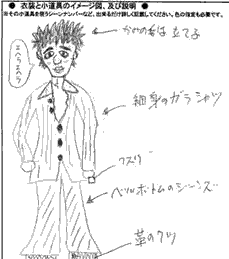 ● 衣装と小道具のイメージ図、及び説明 ●
※その小道具を使うシーンナンバーなど、出来るだけ詳しく記載してください。色の指定も必要です。
エヘラエヘラ
かみの毛は立てる
細身のガラシャツ
ベルボトムのジーンズ
革のクツ